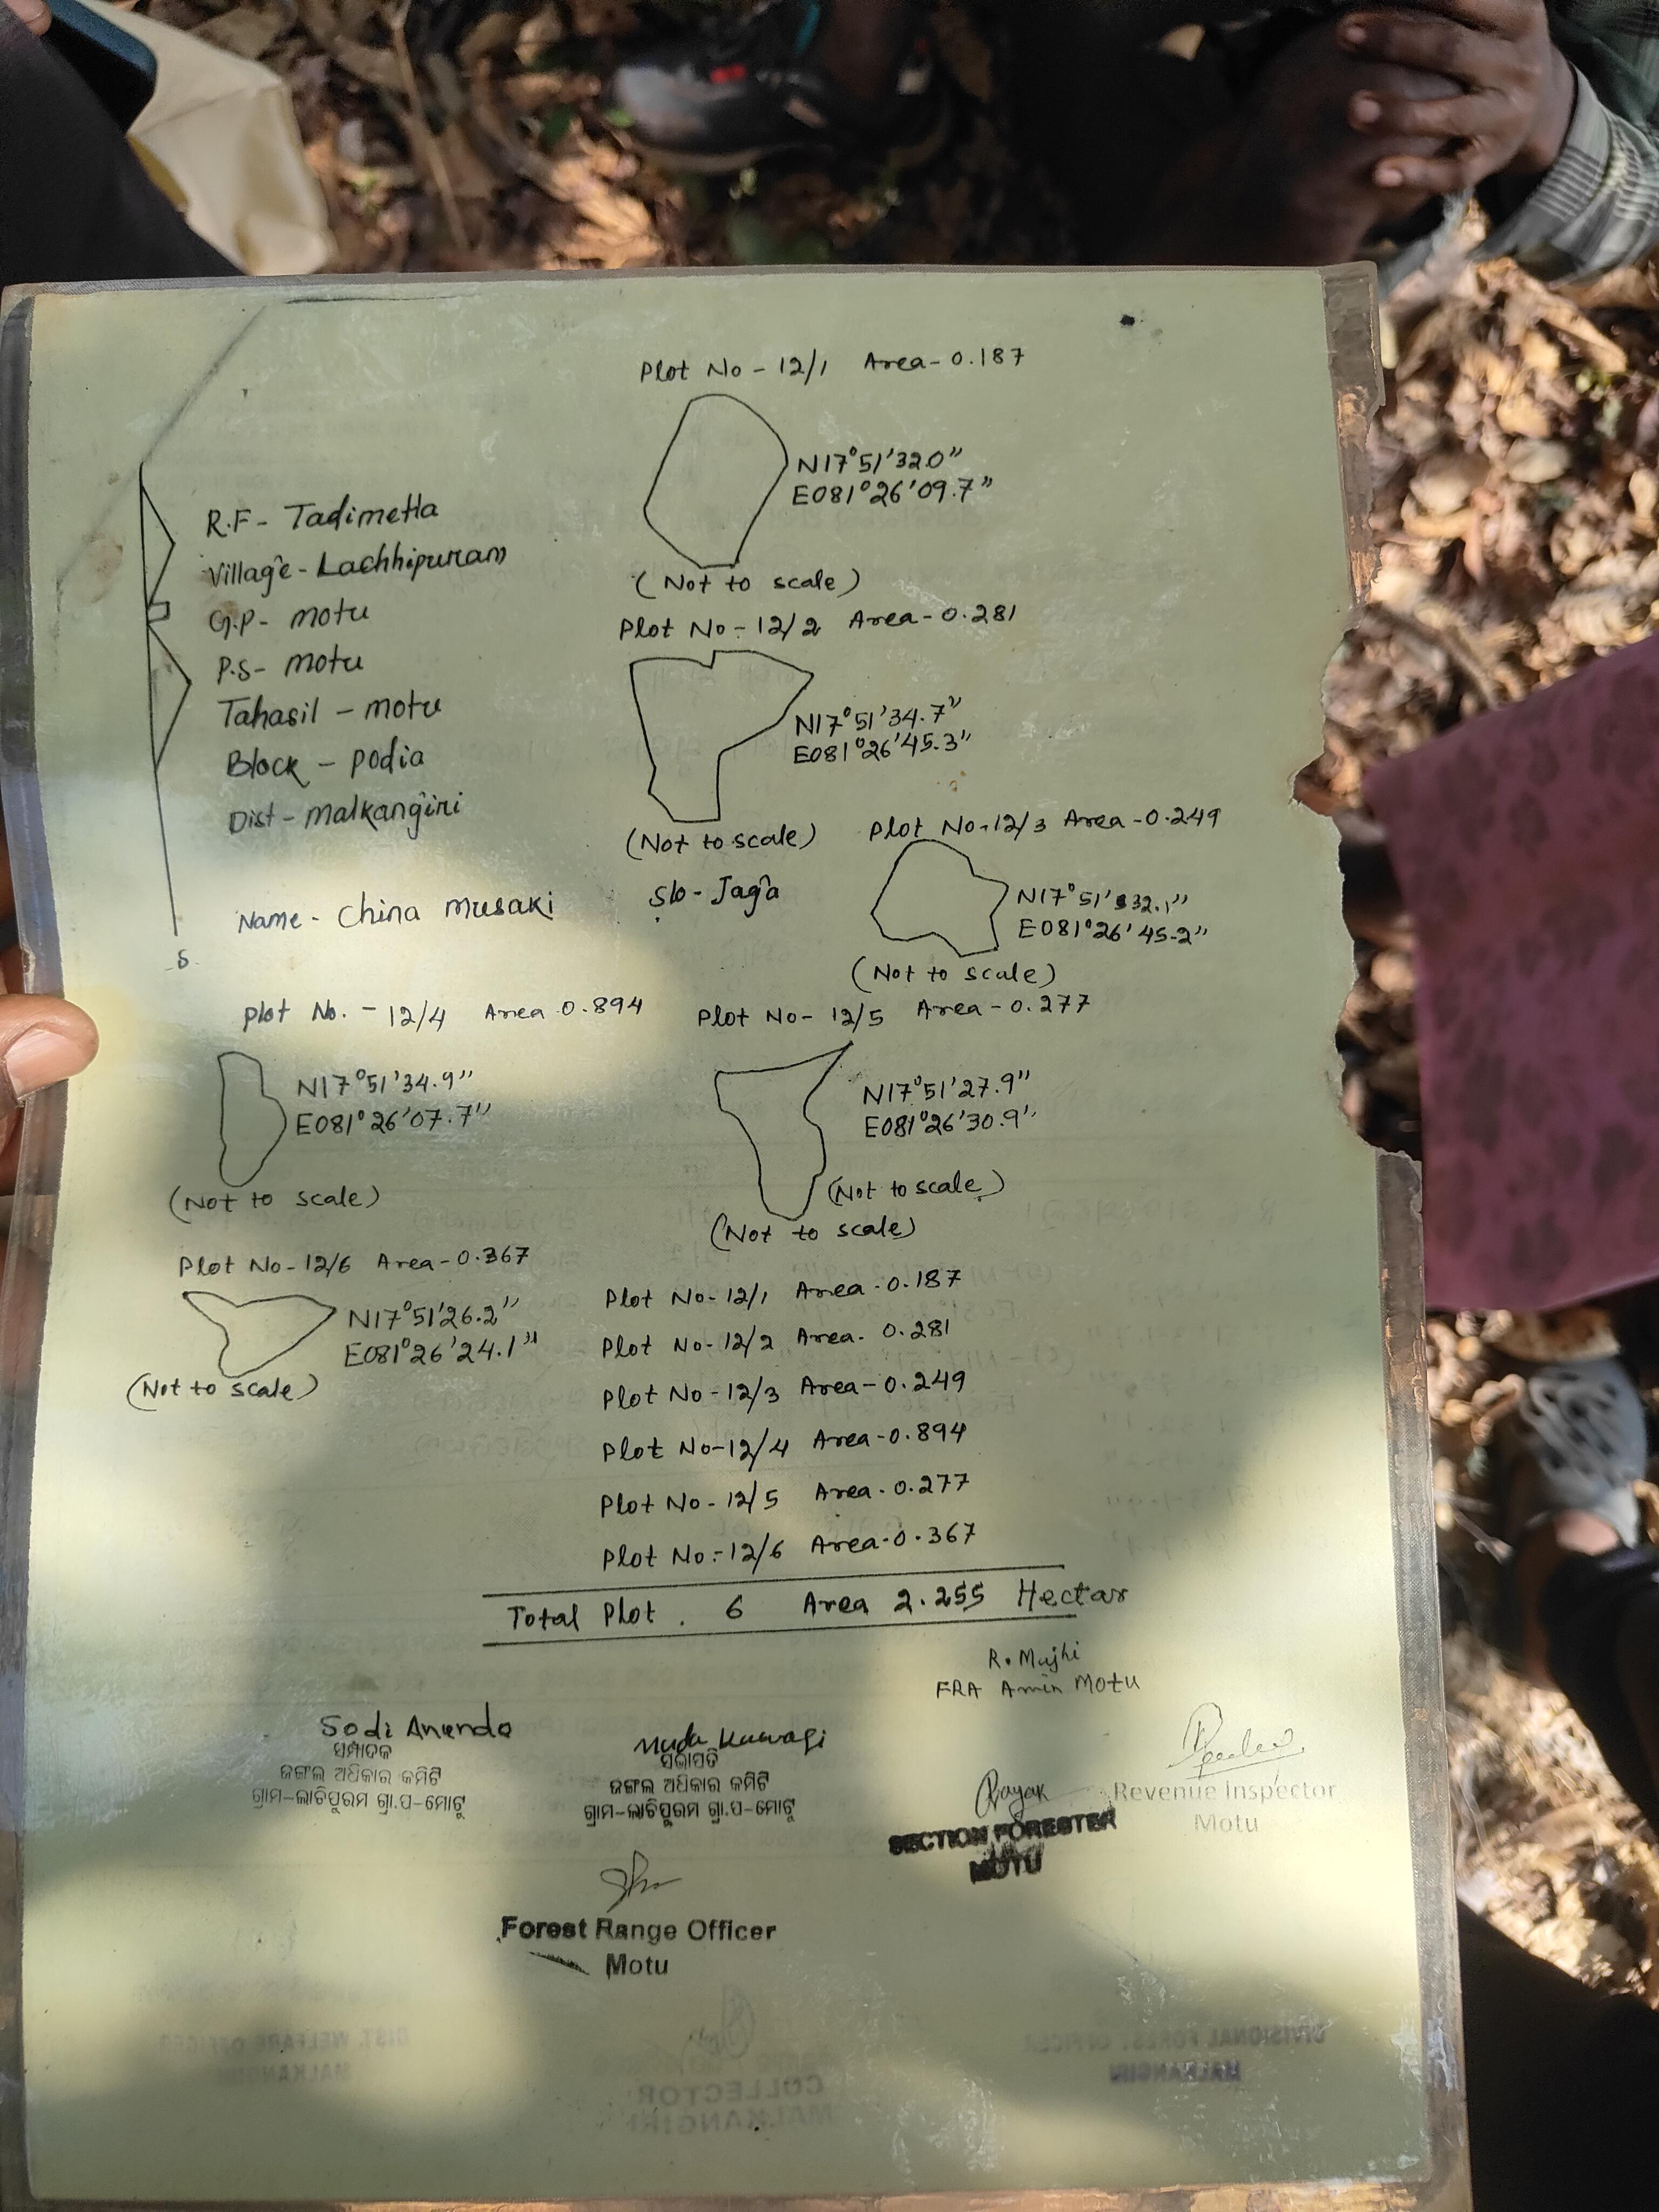 Plot No - 12/1 Area - 0.187
N17°51'32.0"
E081°26'09.7"
(Not to scale)
R.F - Tadimetla
Village - Lachhipuram
G.P - motu
P.S - motu
Tahasil - motu
Block - podia
Dist - malkangiri
Plot No - 12/2 Area - 0.281
N17°51'34.7"
E081°26'45.3"
(Not to scale)
Plot No - 12/3 Area - 0.249
N17°51'32.1"
E081°26'45.2"
(Not to scale)
Name - China musaki S/o - Jaga
S
Plot No. - 12/4 Area 0.894
N17°51'34.9"
E081°26'07.7"
(Not to scale)
Plot No - 12/5 Area - 0.277
N17°51'27.9"
E081°26'30.9"
(Not to scale)
(Not to scale)
Plot No - 12/6 Area - 0.367
N17°51'26.2"
E081°26'24.1"
(Not to scale)
Plot No - 12/1 Area - 0.187
Plot No - 12/2 Area - 0.281
Plot No - 12/3 Area - 0.249
Plot No - 12/4 Area - 0.894
Plot No - 12/5 Area - 0.277
Plot No - 12/6 Area - 0.367
Total Plot . 6 Area 2.255 Hectar
R. Majhi
FRA Amin Motu
Sodi Anando
ସମ୍ପାଦକ
ଜଙ୍ଗଲ ଅଧିକାର କମିଟି
ଗ୍ରାମ-ଲାଚିପୁରମ ଗ୍ରା.ପ-ମୋଟୁ
Muda Kawasi
ସଭାପତି
ଜଙ୍ଗଲ ଅଧିକାର କମିଟି
ଗ୍ରାମ-ଲାଚିପୁରମ ଗ୍ରା.ପ-ମୋଟୁ
SECTION FORESTER
MOTU
Revenue Inspector
Motu
Forest Range Officer
Motu
DIST. WELFARE OFFICER
MALKANGIRI
COLLECTOR
MALKANGIRI
DIVISIONAL FOREST OFFICER
MALKANGIRI